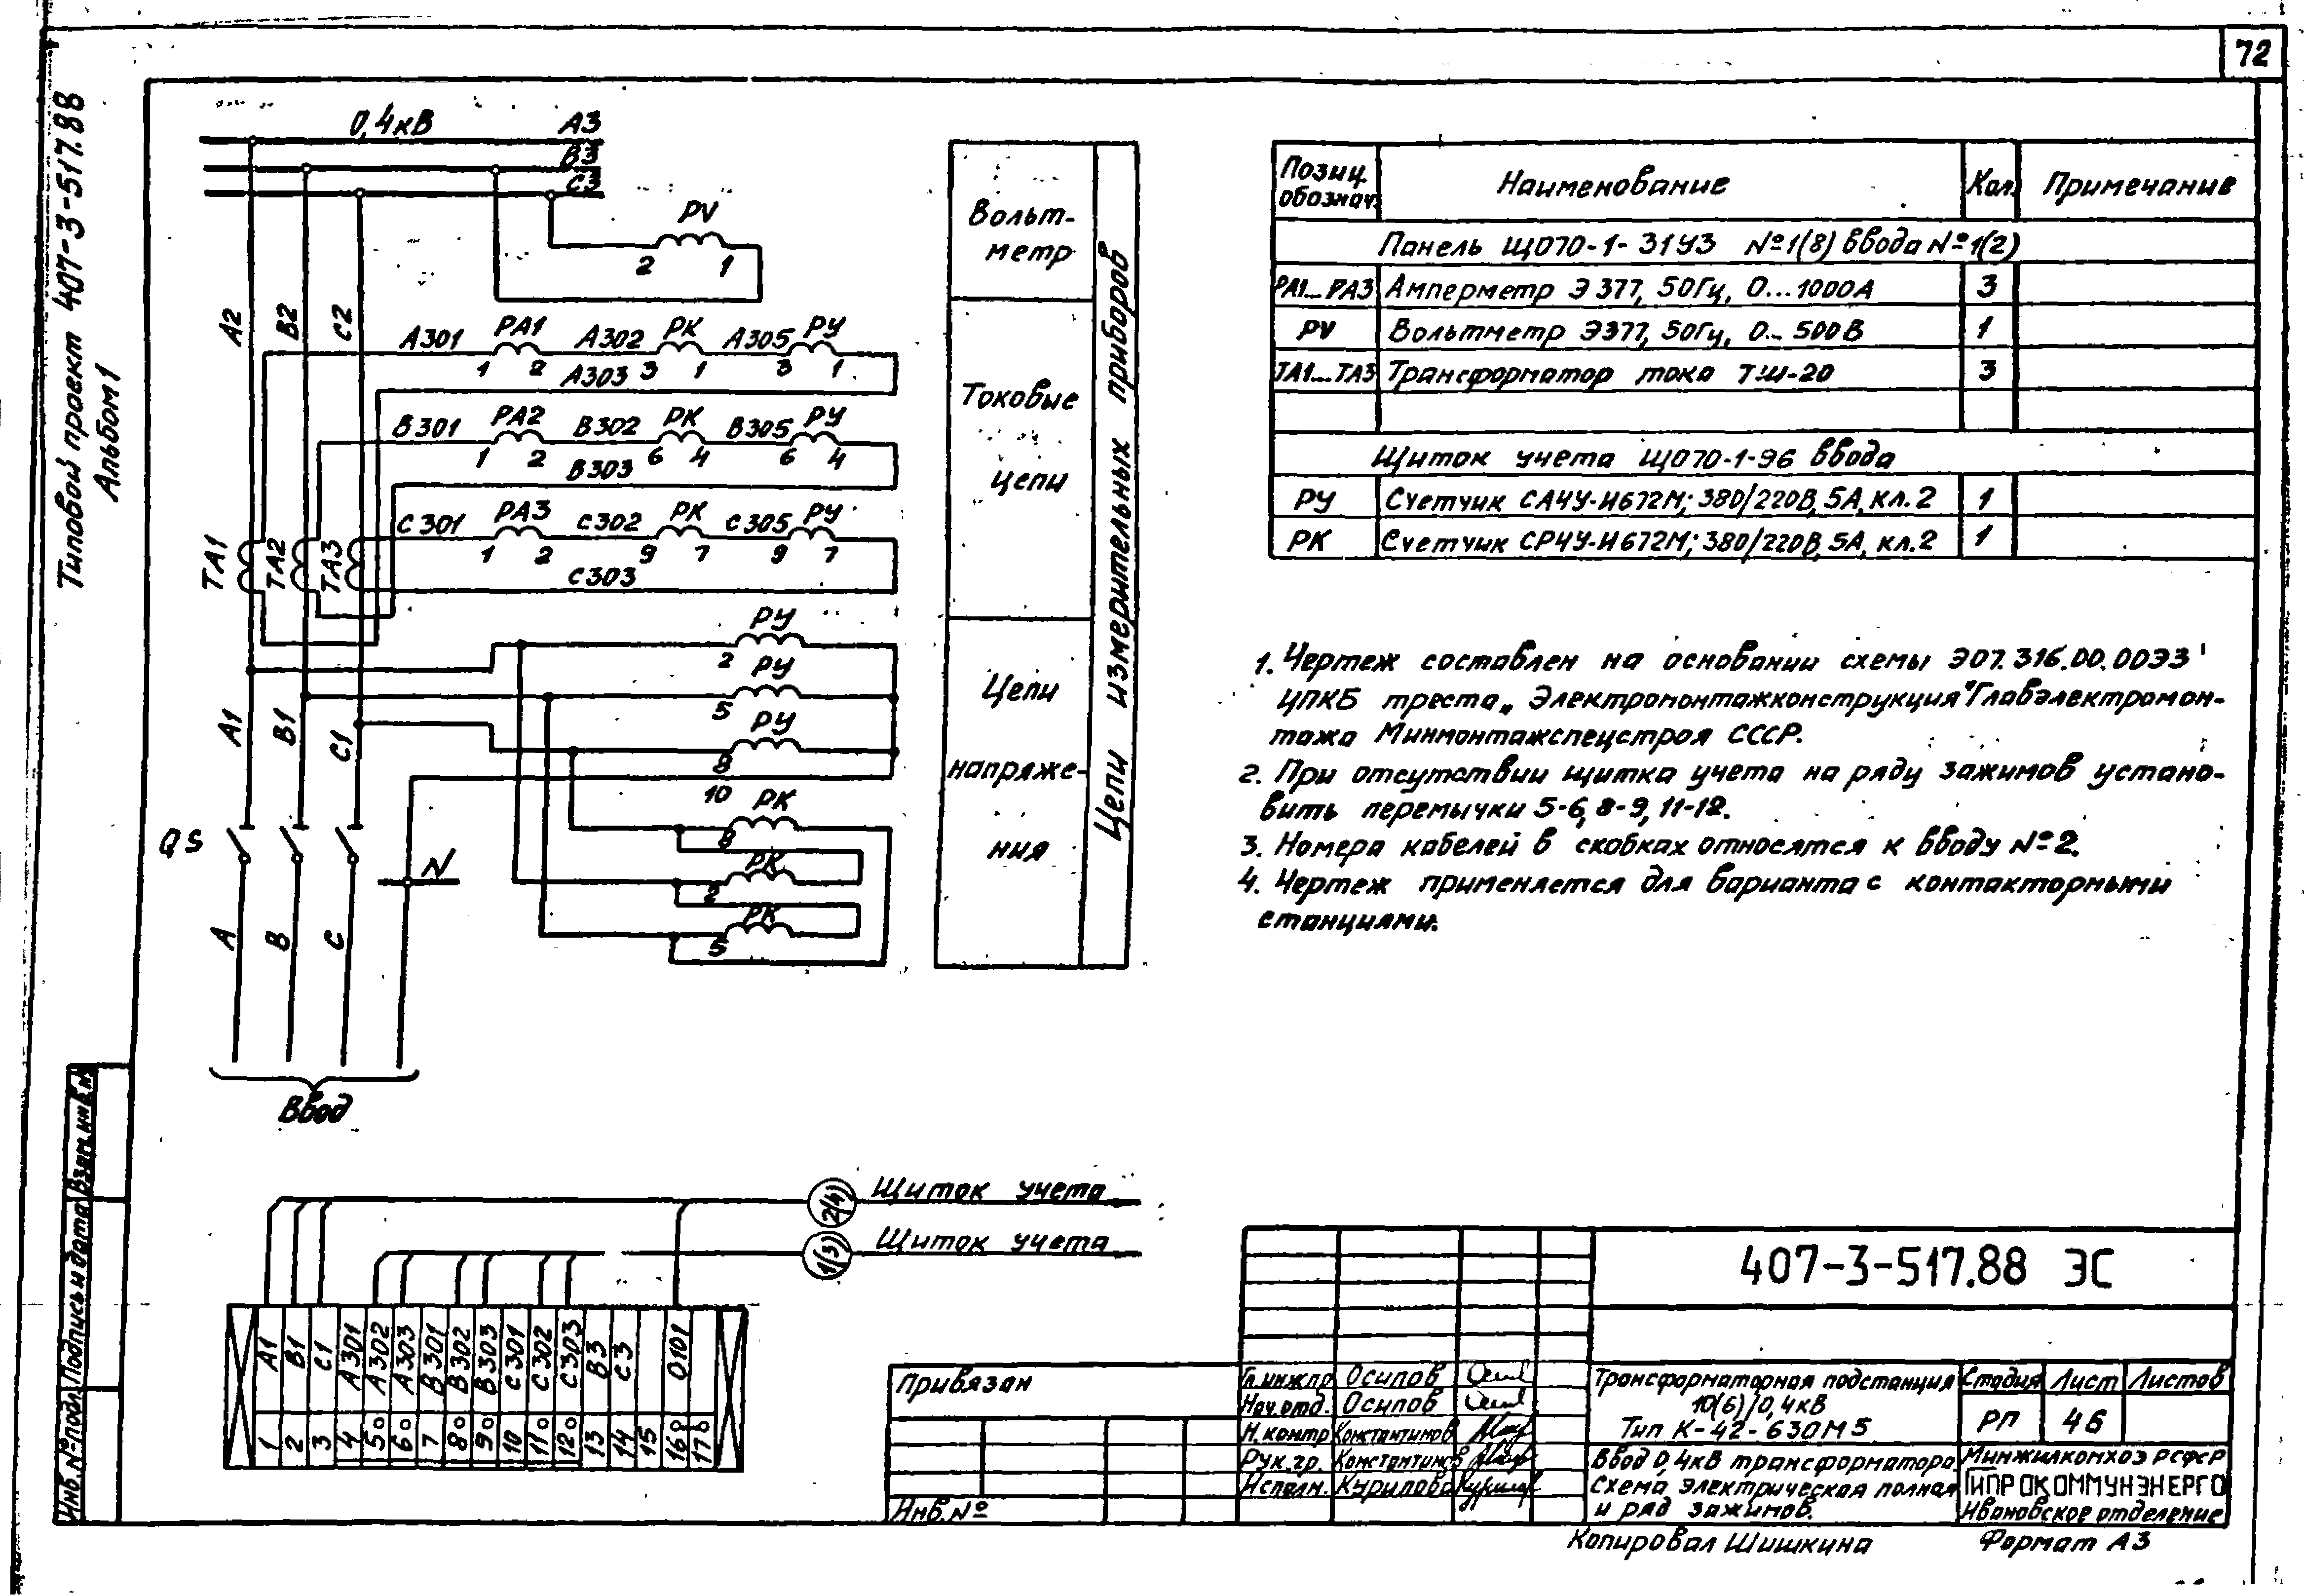 72
Типовой проект 407-3-517.88
Альбом 1
0,4кВ
А3
В3
С3
PV
2 1
А2
В2
С2
А301 РА1 А302 РК А305 РУ
1 2 3 1 3 1
А303
В301 РА2 В302 РК В305 РУ
1 2 6 4 6 4
В303
С301 РА3 С302 РК С305 РУ
1 2 9 7 9 7
С303
ТА1
ТА2
ТА3
РУ
2
РУ
5
РУ
8
10
РК
8
РК
2
РК
5
А1
В1
С1
QS
N
А
В
С
Ввод
Вольт-
метр
Токовые
цепи
Цепи
напряже-
ния
Цепи измерительных приборов
Позиц. обознач. Наименование Кол. Примечание
Панель ЩО70-1-31У3 №1(8) ввода №1(2)
РА1...РА3 Амперметр Э377, 50Гц, 0...1000А 3
PV Вольтметр Э377, 50Гц, 0...500В 1
ТА1...ТА3 Трансформатор тока ТШ-20 3
Щиток учета ЩО70-1-96 ввода
РУ Счетчик СА4У-И672М; 380/220В, 5А, кл.2 1
РК Счетчик СР4У-И672М; 380/220В, 5А, кл.2 1
1. Чертеж составлен на основании схемы Э07.316.00.00Э3
ЦПКБ треста „Электромонтажконструкция" Главэлектромон-
тажа Минмонтажспецстроя СССР.
2. При отсутствии щитка учета на ряду зажимов устано-
вить перемычки 5-6, 8-9, 11-12.
3. Номера кабелей в скобках относятся к вводу №2.
4. Чертеж применяется для варианта с контакторными
станциями.
2(4) Щиток учета
1(3) Щиток учета
А1 В1 С1 А301 А302 А303 В301 В302 В303 С301 С302 С303 В3 С3 0101
1 2 3 4 5 6 7 8 9 10 11 12 13 14 15 16 17
Инв.№подл. Подпись и дата Взам.инв.№
Привязан
Инв.№
407-3-517.88 ЭС
Гл.инж.пр. Осипов
Нач.отд. Осипов
Н.контр. Константинов
Рук.гр. Константинов
Исполн. Курилова
Трансформаторная подстанция
10(6)/0,4кВ
Тип К-42-630М5
Стадия Лист Листов
РП 46
Ввод 0,4кВ трансформатора.
Схема электрическая полная
и ряд зажимов.
Минжилкомхоз РСФСР
ГИПРОКОММУНЭНЕРГО
Ивановское отделение
Копировал Шишкина
Формат А3